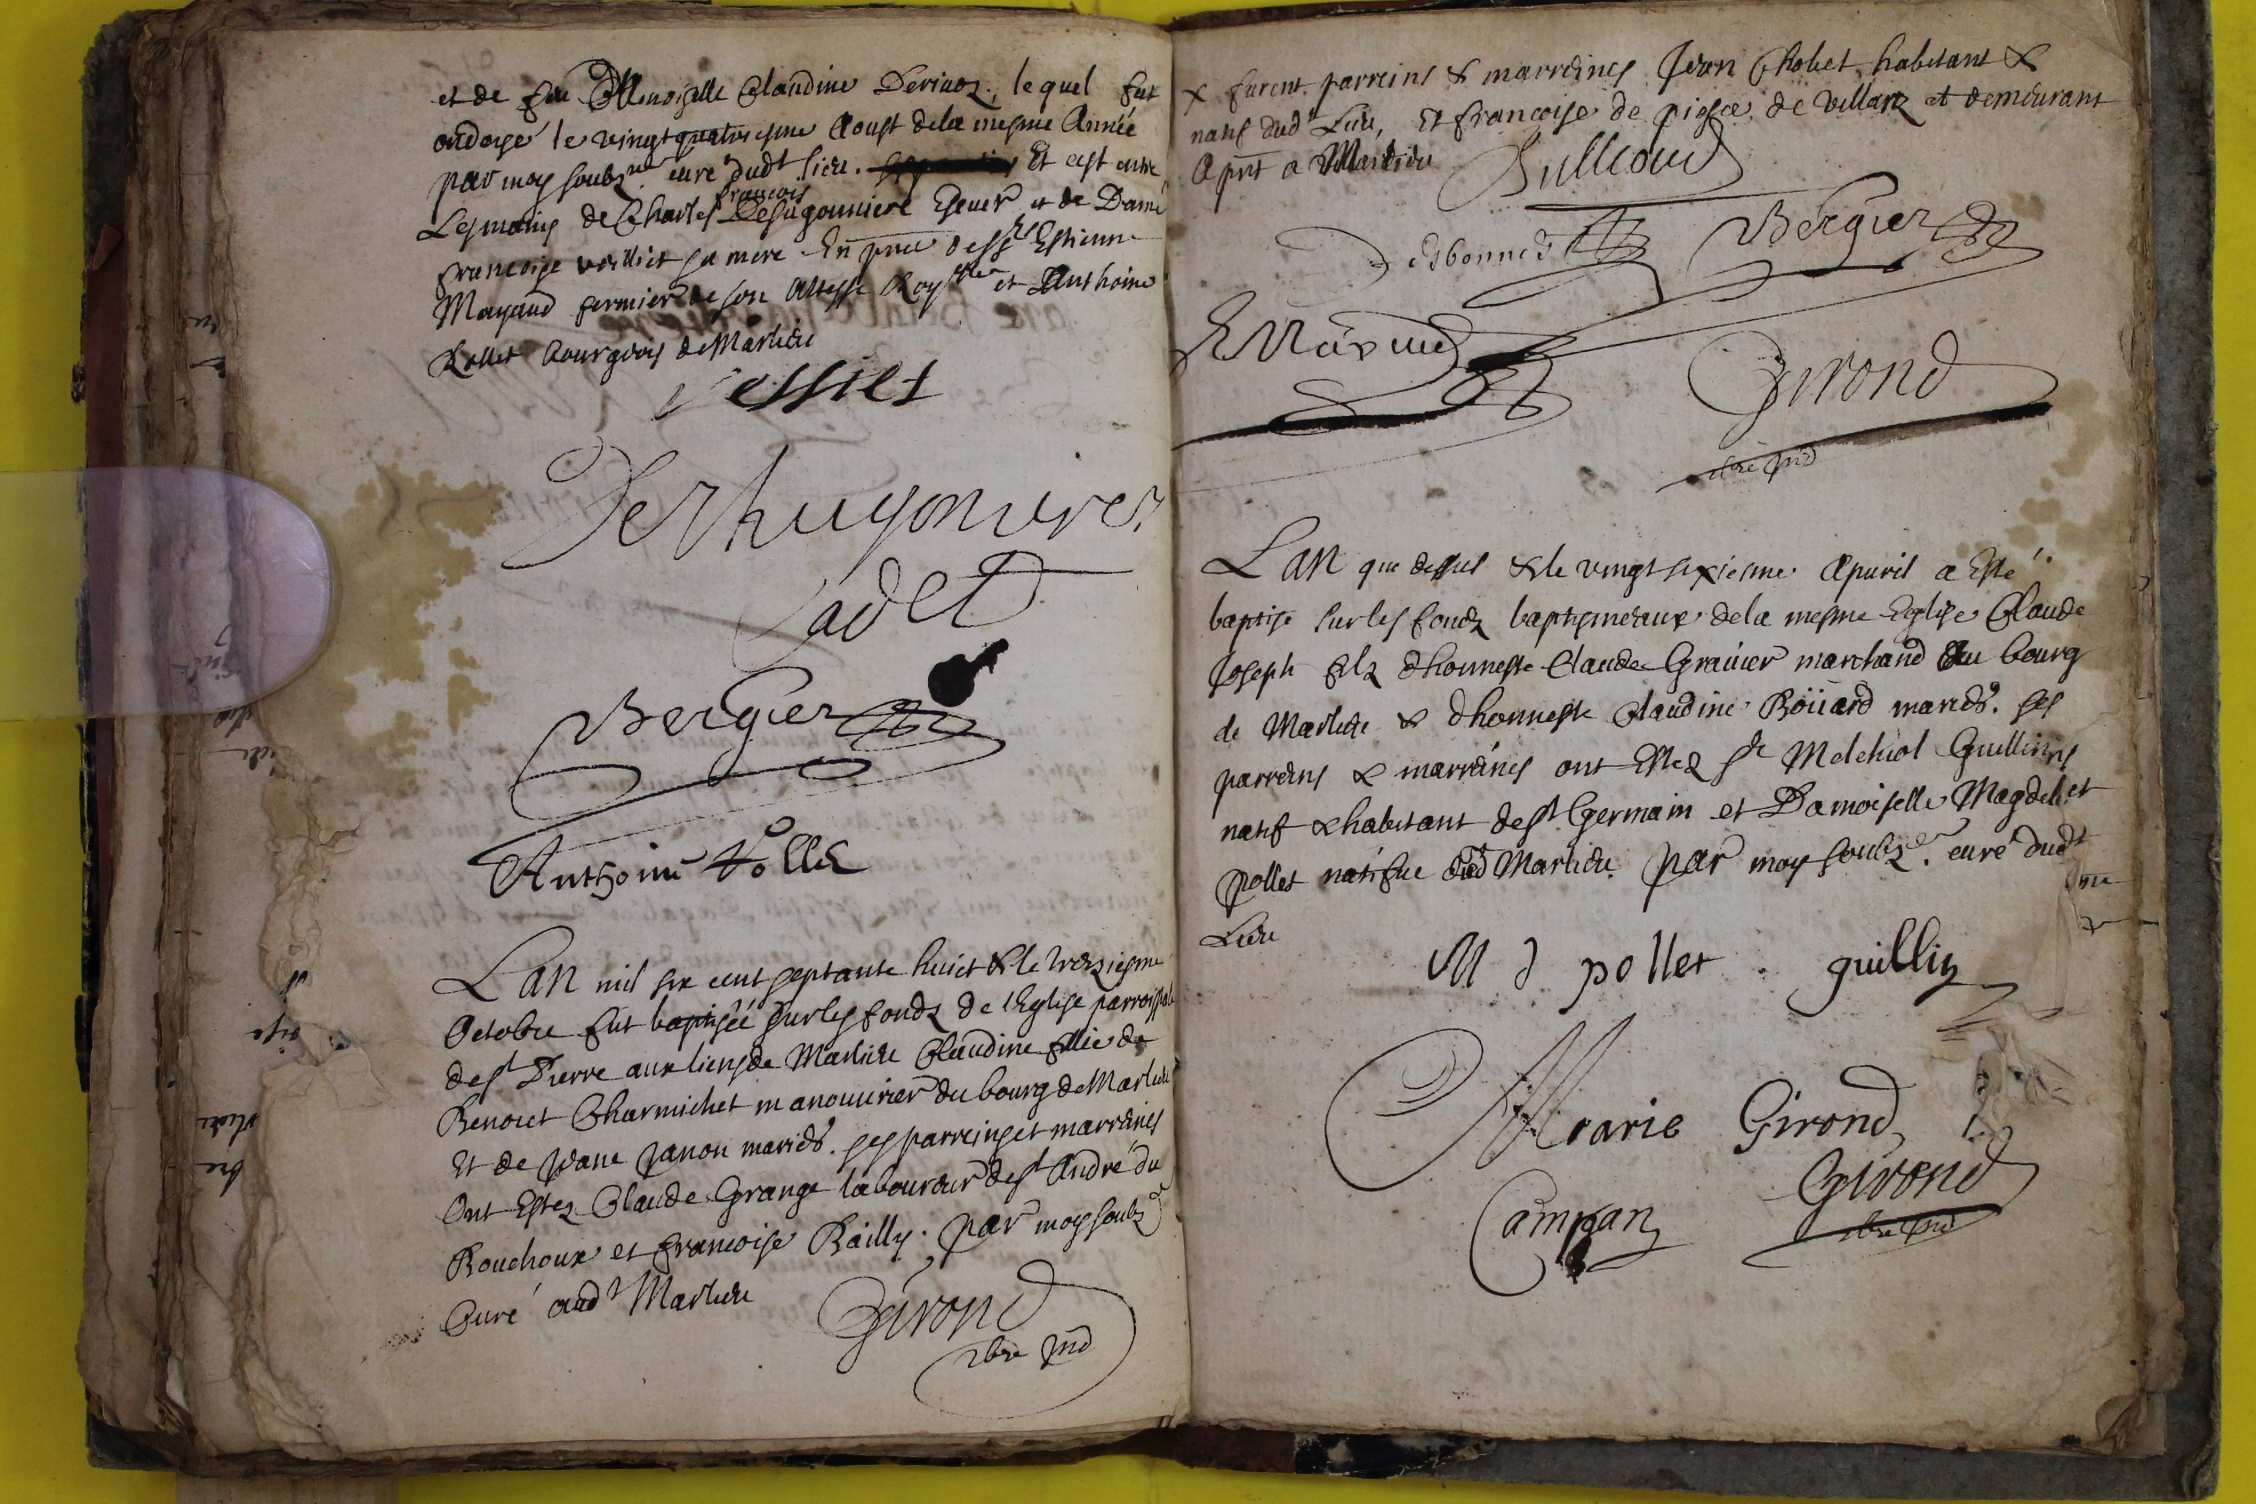 et de feu Claudine lequel fut
ondoyé le vingt quatriesme Aoust dela mesme Année
par moy soubz curé dudt lieu. Et est entre
Les mains de Charles françois Deshugonniere Escuer et de Dame
francoise sa mere En Estienne
Mayaud fermier de son Altesse Royalle et Anthoine
Rollet bourgeois de Marlieu
Vessiet
Deshugonieres
Cadet
Bergier
Anthoine Rollet
L'an mil six cent septante huict & le treziesme
Octobre fut baptisée sur les fonds de l'Eglise parroissiale
de st Pierre aux liens de Marlieu Claudine fille de
Benoict Charmichet manouvrier du bourg de Marlieu
Et de Jeane Janon mariés. ses parreins et marreines
Ont Estez Claude Grange laboureur de st André du
Bouchoux et francoise Bailly. par moy soubz
Curé audt Marlieu
Girond
x furent parreins & marreines Jean Chollet habitant &
natif dudt Lieu, Et francoise de de Villarz et demeurant
Aprnt a Marlieu
Bullioud
Desbonnes
Bergier
E Mayaud
Girond
L'an que dessus & le vingt sixiesme Apuril a Esté
baptise sur les fondz baptismeaux dela mesme Eglise Claude
Joseph filz dhonneste Claude Gravier marchand du bourg
de Marlieu & dhonneste Claudine Boüard mariés. ses
parreins & marreines ont Estez sr Melchiol Guillin
natif & habitant de st Germain et Damoiselle Magdel et
pollet natifue dudt Marlieu par moy soubz. curé dudt
Lieu
M d pollet guillin
Marie Girond
Campan
Girond